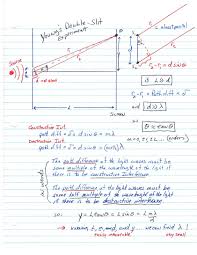 Young's Double-Slit
Experiment
r₁
r₂
d
L
Screen
if L >> d
r₂-r₁ = path diff
and d >> λ
so:
θ ≈ sin θ
Constructive Int.
path diff = d sin θ = mλ
Destructive Int.
path diff = d sin θ = (m+½)λ
m = 0, 1, 2, ... (orders)
The path difference of the light waves must be
some multiple of the wavelength of the light if
there is to be constructive interference.
The path difference of the light waves must be
some half multiple of the wavelength of the light
if there is to be destructive interference.
so: y = L tan θ ≈ L sin θ =
easily measurable
very small